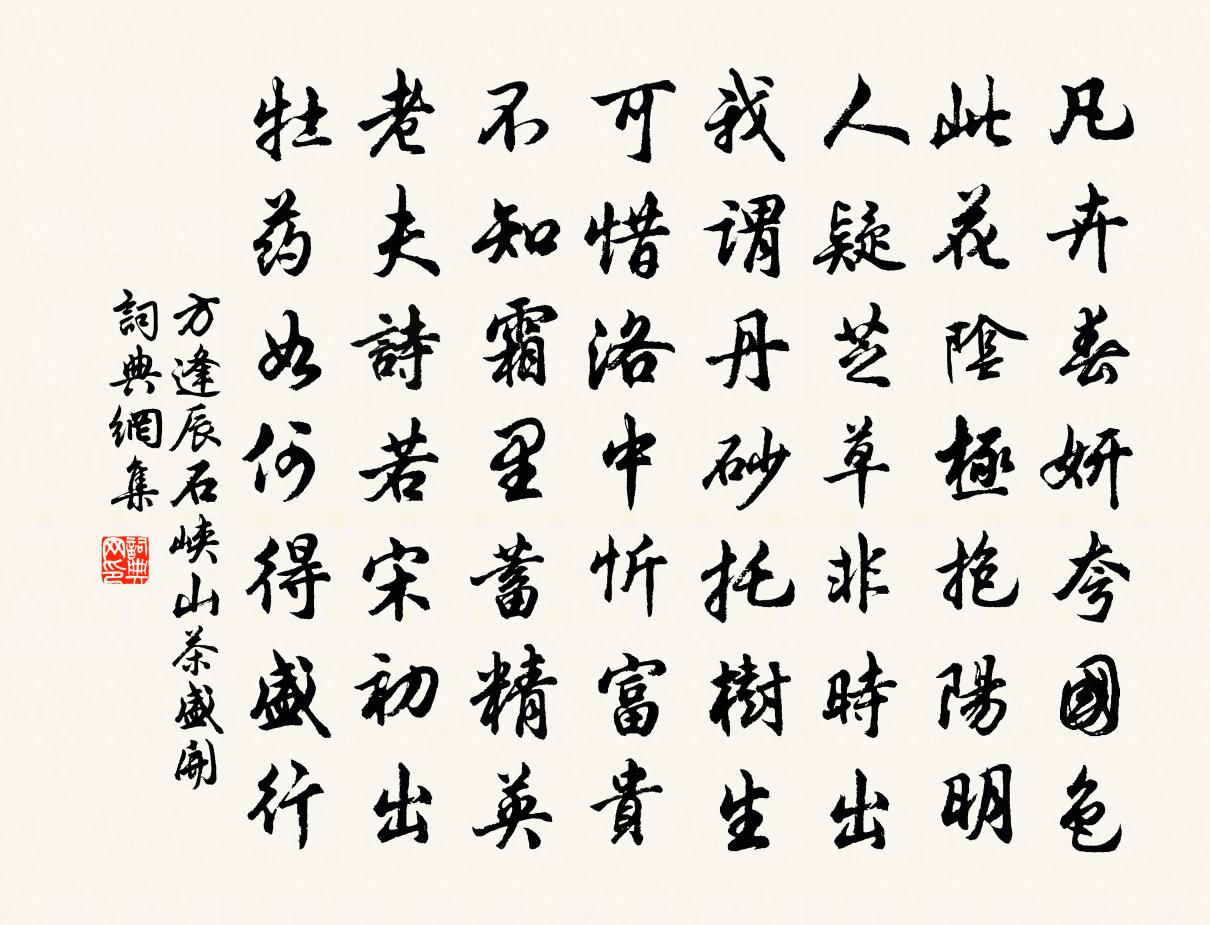 凡卉春妍夸國色
此花陰極抱陽明
人疑芝草非時出
我謂丹砂托樹生
可惜洛中忻富貴
不知霜里蓄精英
老夫詩若宋初出
牡药如何得盛行
方逢辰石峽山茶盛開
詞典網集
詞典网印